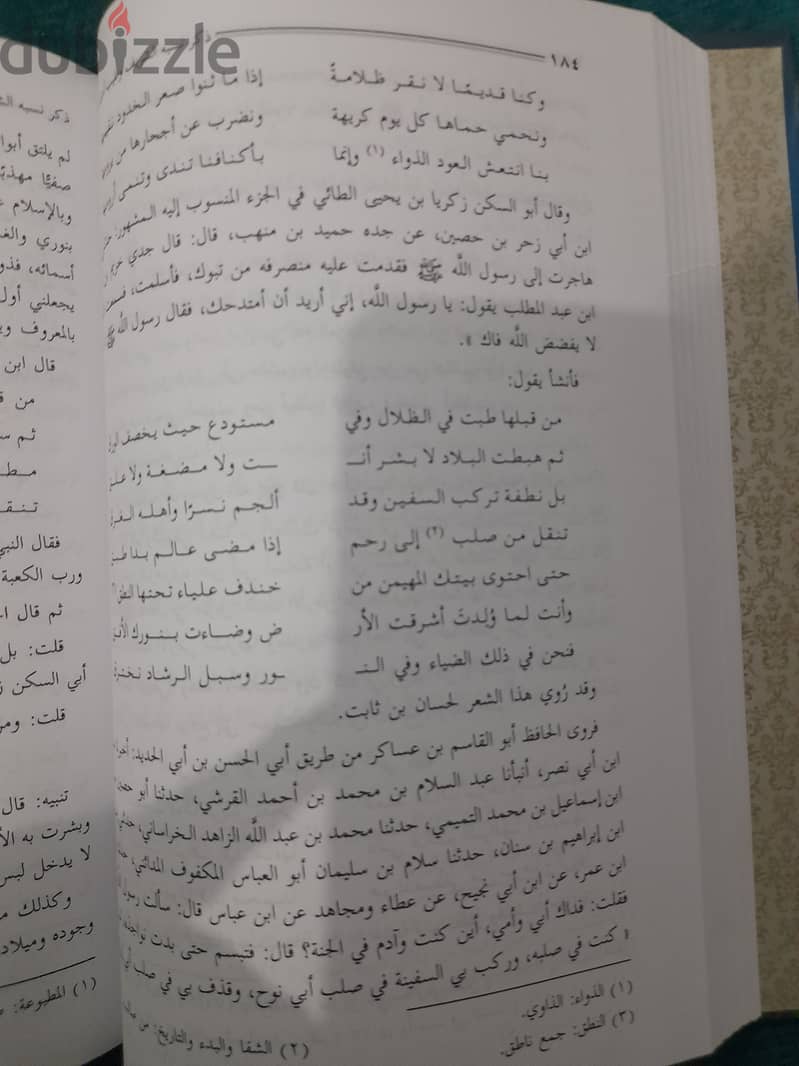 dubizzle
١٨٤
وكنا قديمًا لا نقر ظلامةً إذا ما ثنوا صعر الخدود
ونحمي حماها كل يوم كريهة ونضرب عن أحجارها من
بنا انتعش العود الذواء (١) وإنما بأكنافنا تندى وتنمى
وقال أبو السكن زكريا بن يحيى الطائي في الجزء المنسوب إليه المشهور:
ابن أبي زحر بن حصين، عن جده حميد بن منهب، قال: قال جدي
هاجرت إلى رسول الله ﷺ فقدمت عليه منصرفه من تبوك، فأسلمت،
ابن عبد المطلب يقول: يا رسول الله، إني أريد أن أمتدحك، فقال رسول الله ﷺ
لا يفضض الله فاك ».
فأنشأ يقول:
من قبلها طبت في الظلال وفي مستودع حيث يخصف
ثم هبطت البلاد لا بشر أنـ ـت ولا مضغة ولا
بل نطفة تركب السفين وقد ألجم نسرًا وأهله
تنقل من صلب (٢) إلى رحم إذا مضى عالم بدا
حتى احتوى بيتك المهيمن من خندف علياء تحتها
وأنت لما وُلِدتَ أشرقت الأر ض وضاءت بنورك
فنحن في ذلك الضياء وفي النـ ـور وسبل الرشاد
وقد رُوي هذا الشعر لحسان بن ثابت.
فروى الحافظ أبو القاسم بن عساكر من طريق أبي الحسن بن أبي الحديد:
ابن أبي نصر، أنبأنا عبد السلام بن محمد بن أحمد القرشي، حدثنا أبو
ابن إسماعيل بن محمد التميمي، حدثنا محمد بن عبد الله الزاهد الخراساني،
ابن إبراهيم بن سنان، حدثنا سلام بن سليمان أبو العباس المكفوف المدائني،
ابن عمر، عن ابن أبي نجيح، عن عطاء ومجاهد عن ابن عباس قال: سألت رسول
فقلت: فداك أبي وأمي، أين كنت وآدم في الجنة؟ قال: فتبسم حتى بدت نواجذه
« كنت في صلبه، وركب بي السفينة في صلب أبي نوح، وقذف بي في صلب
(١) الذواء: الذاوي.
(٢) الشفا والبدء والتاريخ: من
(٣) النطق: جمع ناطق.
ذكر نسبه
لم يلتق أبوا
وبالإسلام
بنوري
أسمائه،
يجعلني أول
بالمعروف
قال ابن
من
ثم
فقال النبي
ورب الكعبة
ثم قال
قلت: بل
أبي السكن
قلت:
تنبيه: قال
وبشرت به
لا يدخل
وكذلك
وجوده
(١) المطبوعة: